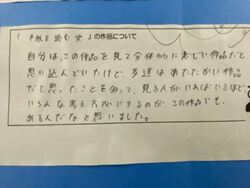 「手紙を読む女」の作品について
自分は、この作品を見て全体的に悲しい作品だと
思い込んでいたけど、友達はあたたかい作品
だと思ったことを知って、見る人がいればいるほど
いろんな考え方ができるものが、この作品でも、
あるんだなと思いました。